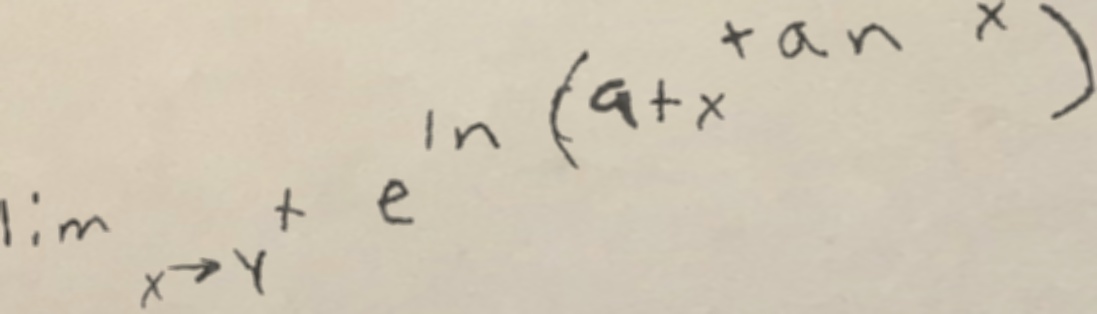 lim x→y⁺ e^ln(a+x^tan x)